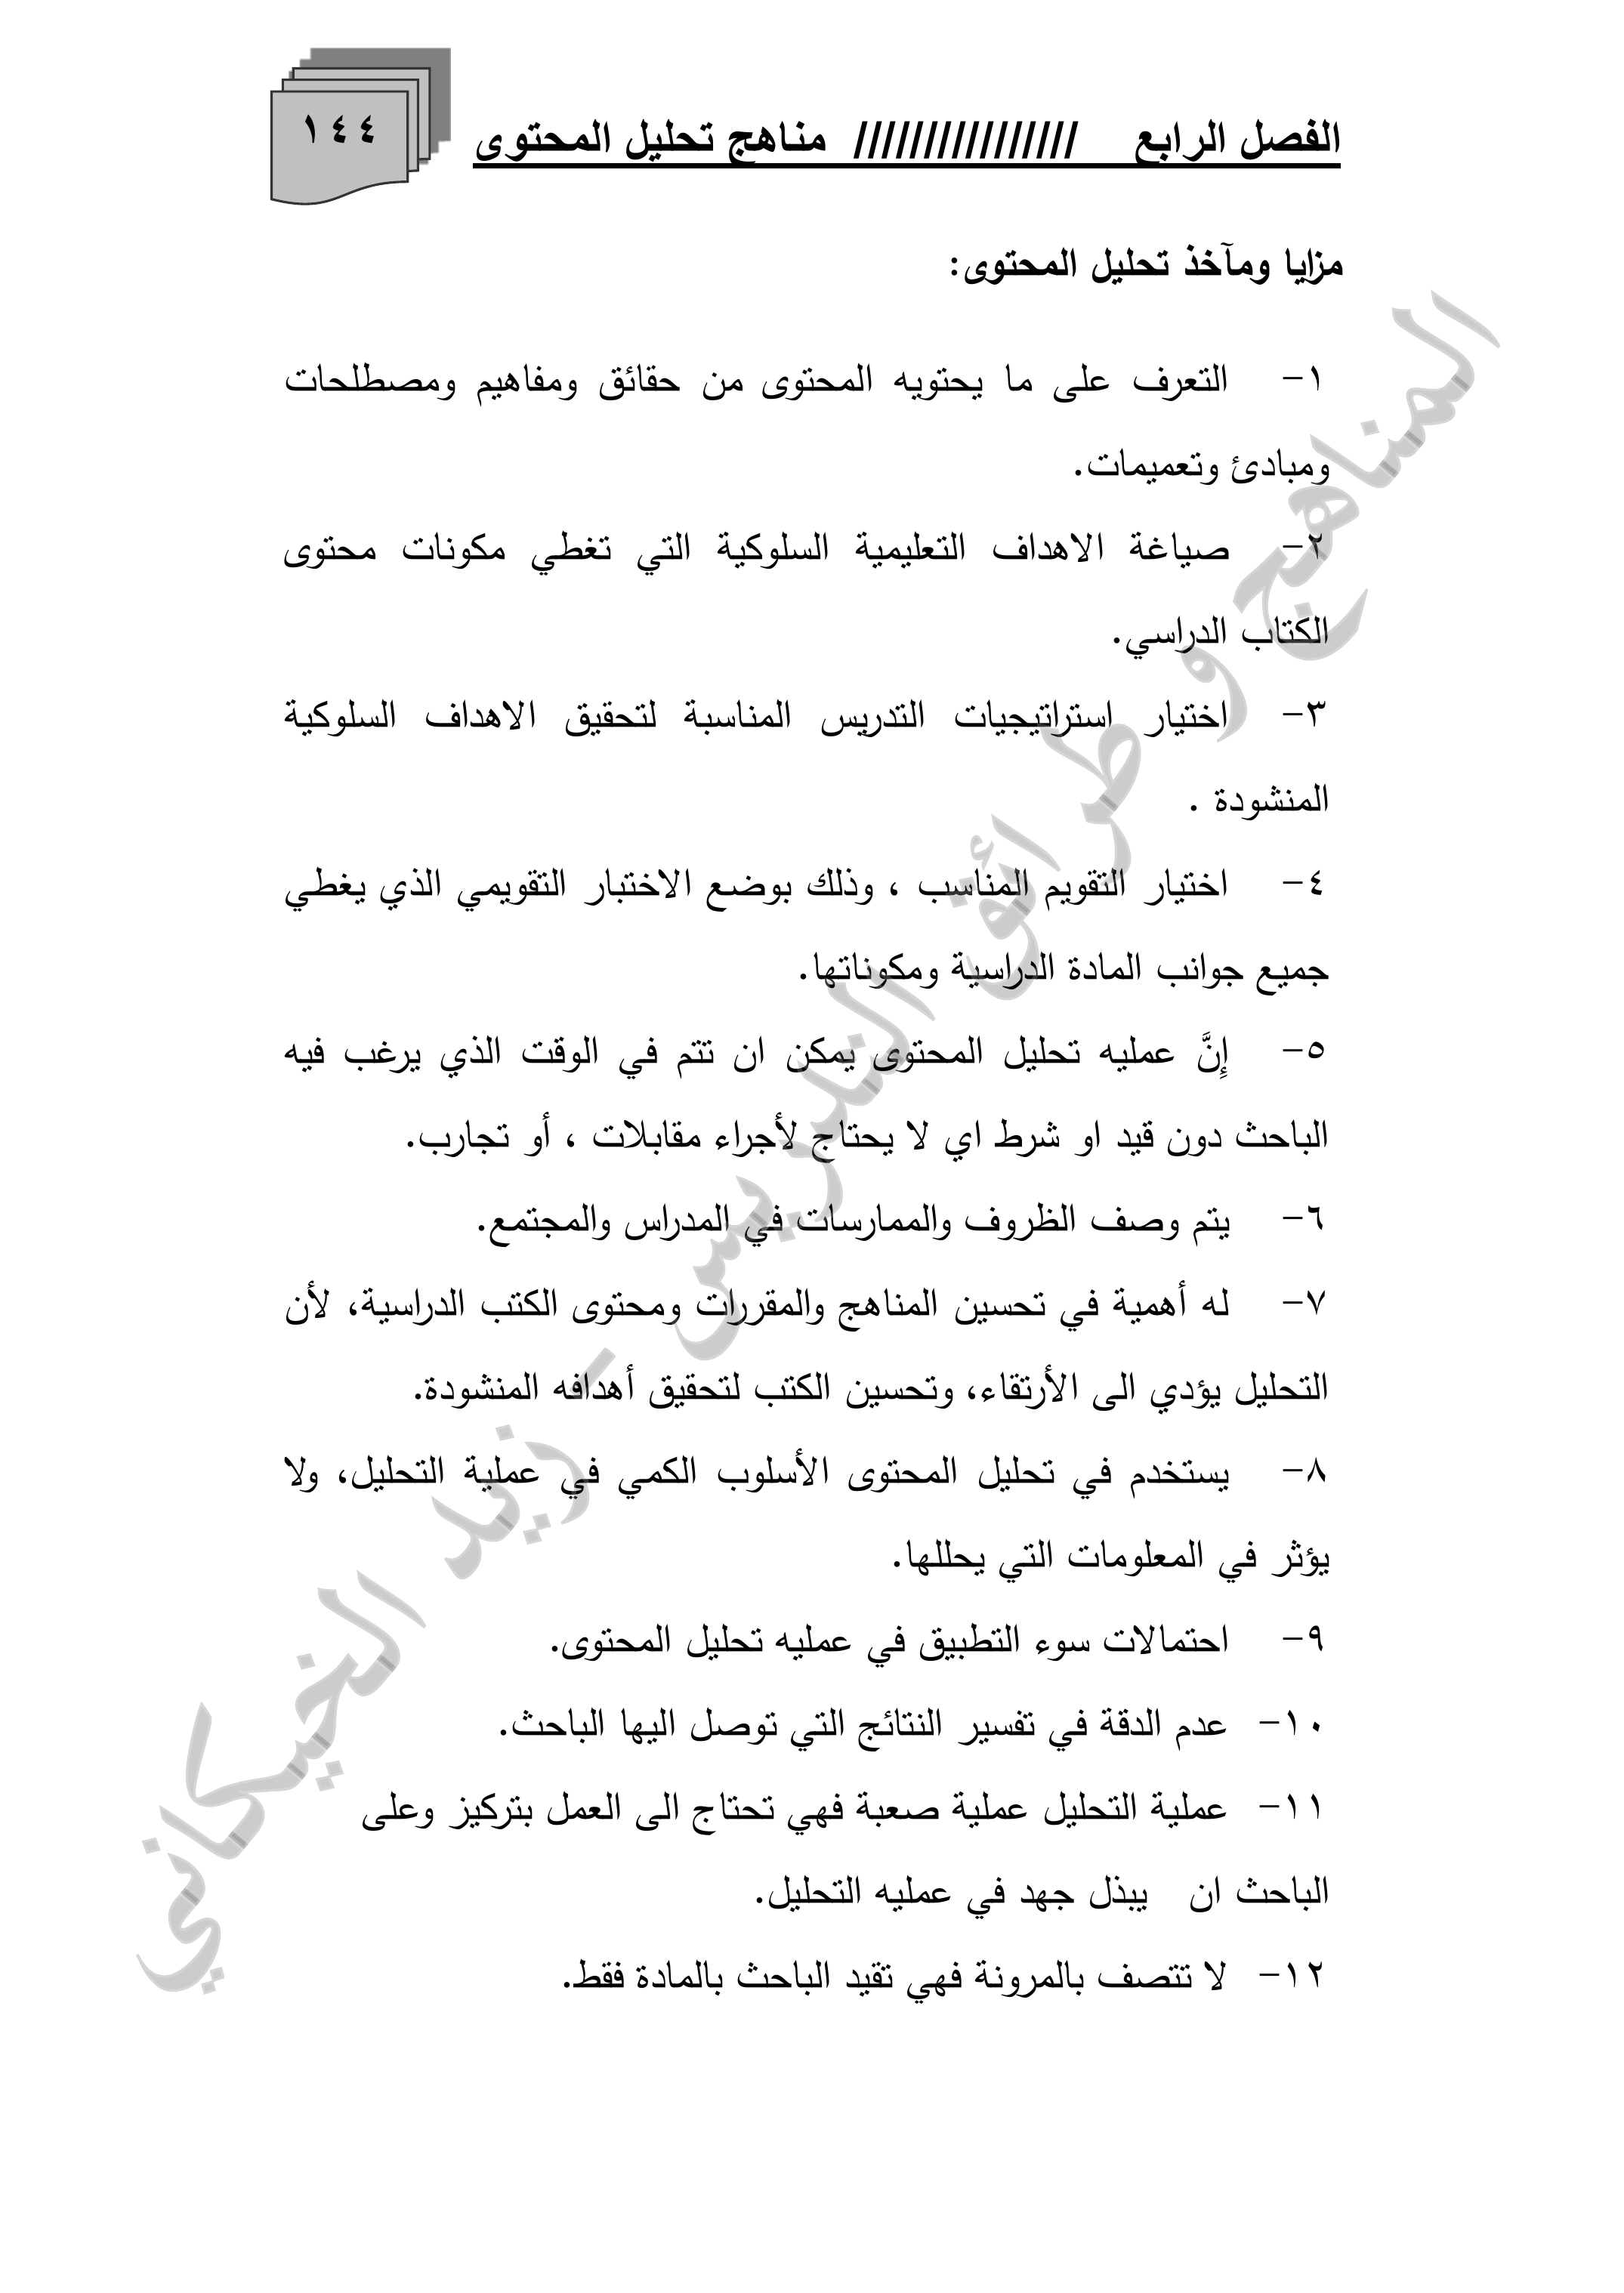 الفصل الرابع //////////////// مناهج تحليل المحتوى
١٤٤
مزايا ومآخذ تحليل المحتوى:
١- التعرف على ما يحتويه المحتوى من حقائق ومفاهيم ومصطلحات
ومبادئ وتعميمات.
٢- صياغة الاهداف التعليمية السلوكية التي تغطي مكونات محتوى
الكتاب الدراسي.
٣- اختيار استراتيجيات التدريس المناسبة لتحقيق الاهداف السلوكية
المنشودة .
٤- اختيار التقويم المناسب ، وذلك بوضع الاختبار التقويمي الذي يغطي
جميع جوانب المادة الدراسية ومكوناتها.
٥- إِنَّ عمليه تحليل المحتوى يمكن ان تتم في الوقت الذي يرغب فيه
الباحث دون قيد او شرط اي لا يحتاج لأجراء مقابلات ، أو تجارب.
٦- يتم وصف الظروف والممارسات في المدراس والمجتمع.
٧- له أهمية في تحسين المناهج والمقررات ومحتوى الكتب الدراسية، لأن
التحليل يؤدي الى الأرتقاء، وتحسين الكتب لتحقيق أهدافه المنشودة.
٨- يستخدم في تحليل المحتوى الأسلوب الكمي في عملية التحليل، ولا
يؤثر في المعلومات التي يحللها.
٩- احتمالات سوء التطبيق في عمليه تحليل المحتوى.
١٠- عدم الدقة في تفسير النتائج التي توصل اليها الباحث.
١١- عملية التحليل عملية صعبة فهي تحتاج الى العمل بتركيز وعلى
الباحث ان يبذل جهد في عمليه التحليل.
١٢- لا تتصف بالمرونة فهي تقيد الباحث بالمادة فقط.
المناهج و طرائق التدريس - زيد الخيكاني